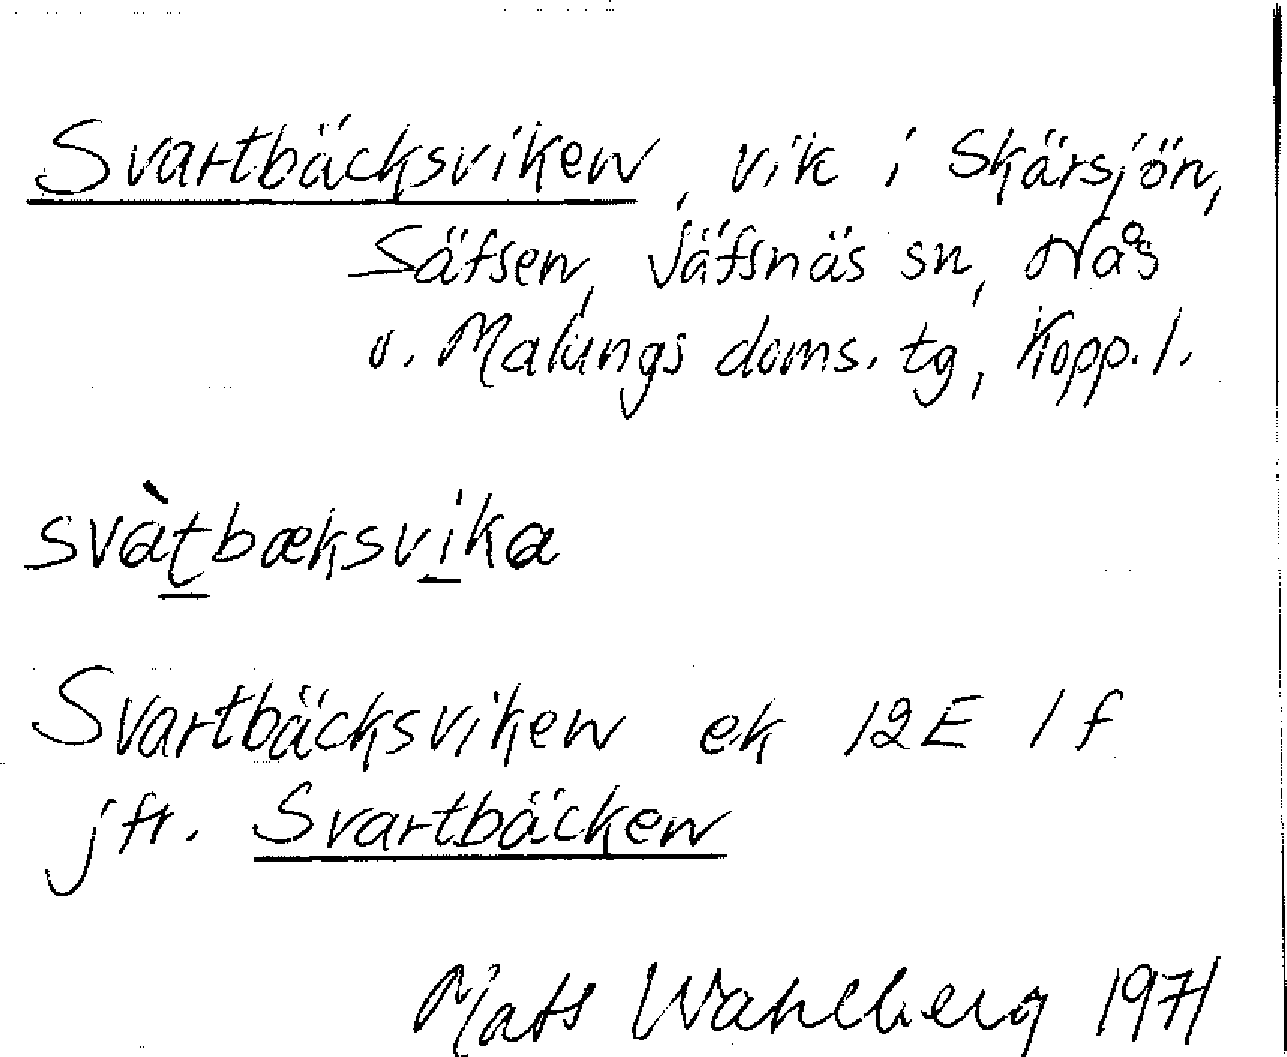 Svartbäcksviken, vik i Skärsjön,
Säfsen, Jäfsnäs sn, Nås
o. Malungs doms. tg, Kopp. l.
svàt̲bæksvi̲ka
Svartbäcksviken ek 12E 1f
jfr. Svartbäcken
Mats Wahlberg 1971